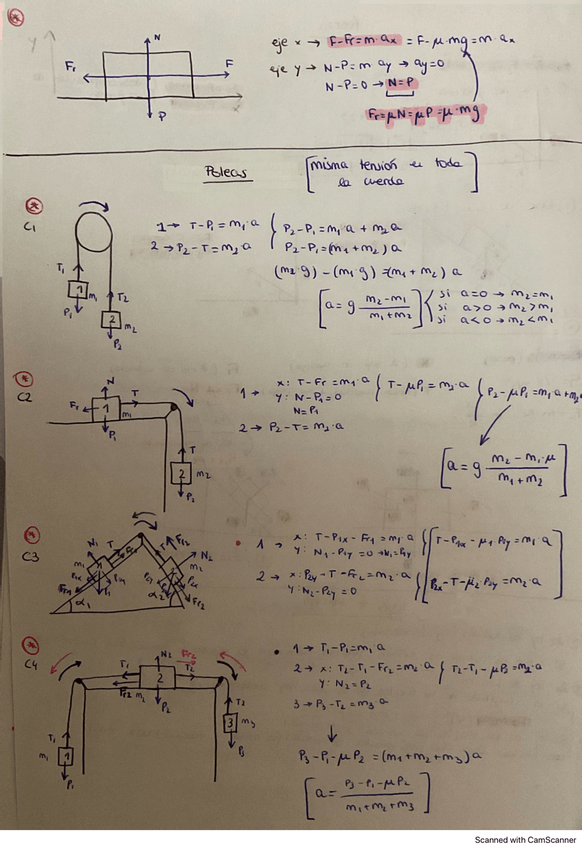 y
N
Fr
F
x
P
eje x → F-Fr=m·ax = F-μ·mg=m·ax
eje y → N-P=m·ay → ay=0
N-P=0 → N=P
Fr=μN=μP=μ·mg
Poleas
[misma tensión en toda
la cuerda]
C1
T1
1 m1
P1
T2
2 m2
P2
1→ T-P1=m1·a
2→ P2-T=m2·a
P2-P1=m1·a+m2a
P2-P1=(m1+m2)a
(m2·g)-(m1·g)=(m1+m2)a
[a=g (m2-m1)/(m1+m2)]
si a=0 → m2=m1
si a>0 → m2>m1
si a<0 → m2<m1
C2
N
Fr 1 T
m1
P1
T
2 m2
P2
1→ x: T-Fr=m1·a
y: N-P1=0
N=P1
T-μP1=m1·a
2→ P2-T=m2·a
P2-μP1=m1a+m2
[a=g (m2-m1·μ)/(m1+m2)]
C3
N1
T
m1
P1x
P1y
P1
α1
T
N2
m2
P2x
α2
Fr2
1→ x: T-P1x-Fr1=m1·a
y: N1-P1y=0
T-P1x-μ1P1y=m1·a
2→ x: P2y-T-Fr2=m2·a
y: N2-P2y=0
P2x-T-μ2P2y=m2·a
C4
N2
Fr2
T1
2
T2
Fr2 m2
P2
T1
m1 1
P1
T2
3 m3
P3
1→ T1-P1=m1a
2→ x: T2-T1-Fr2=m2·a
y: N2=P2
T2-T1-μP2=m2·a
3→ P3-T2=m3a
P3-P1-μP2=(m1+m2+m3)a
[a=(P3-P1-μP2)/(m1+m2+m3)]
Scanned with CamScanner